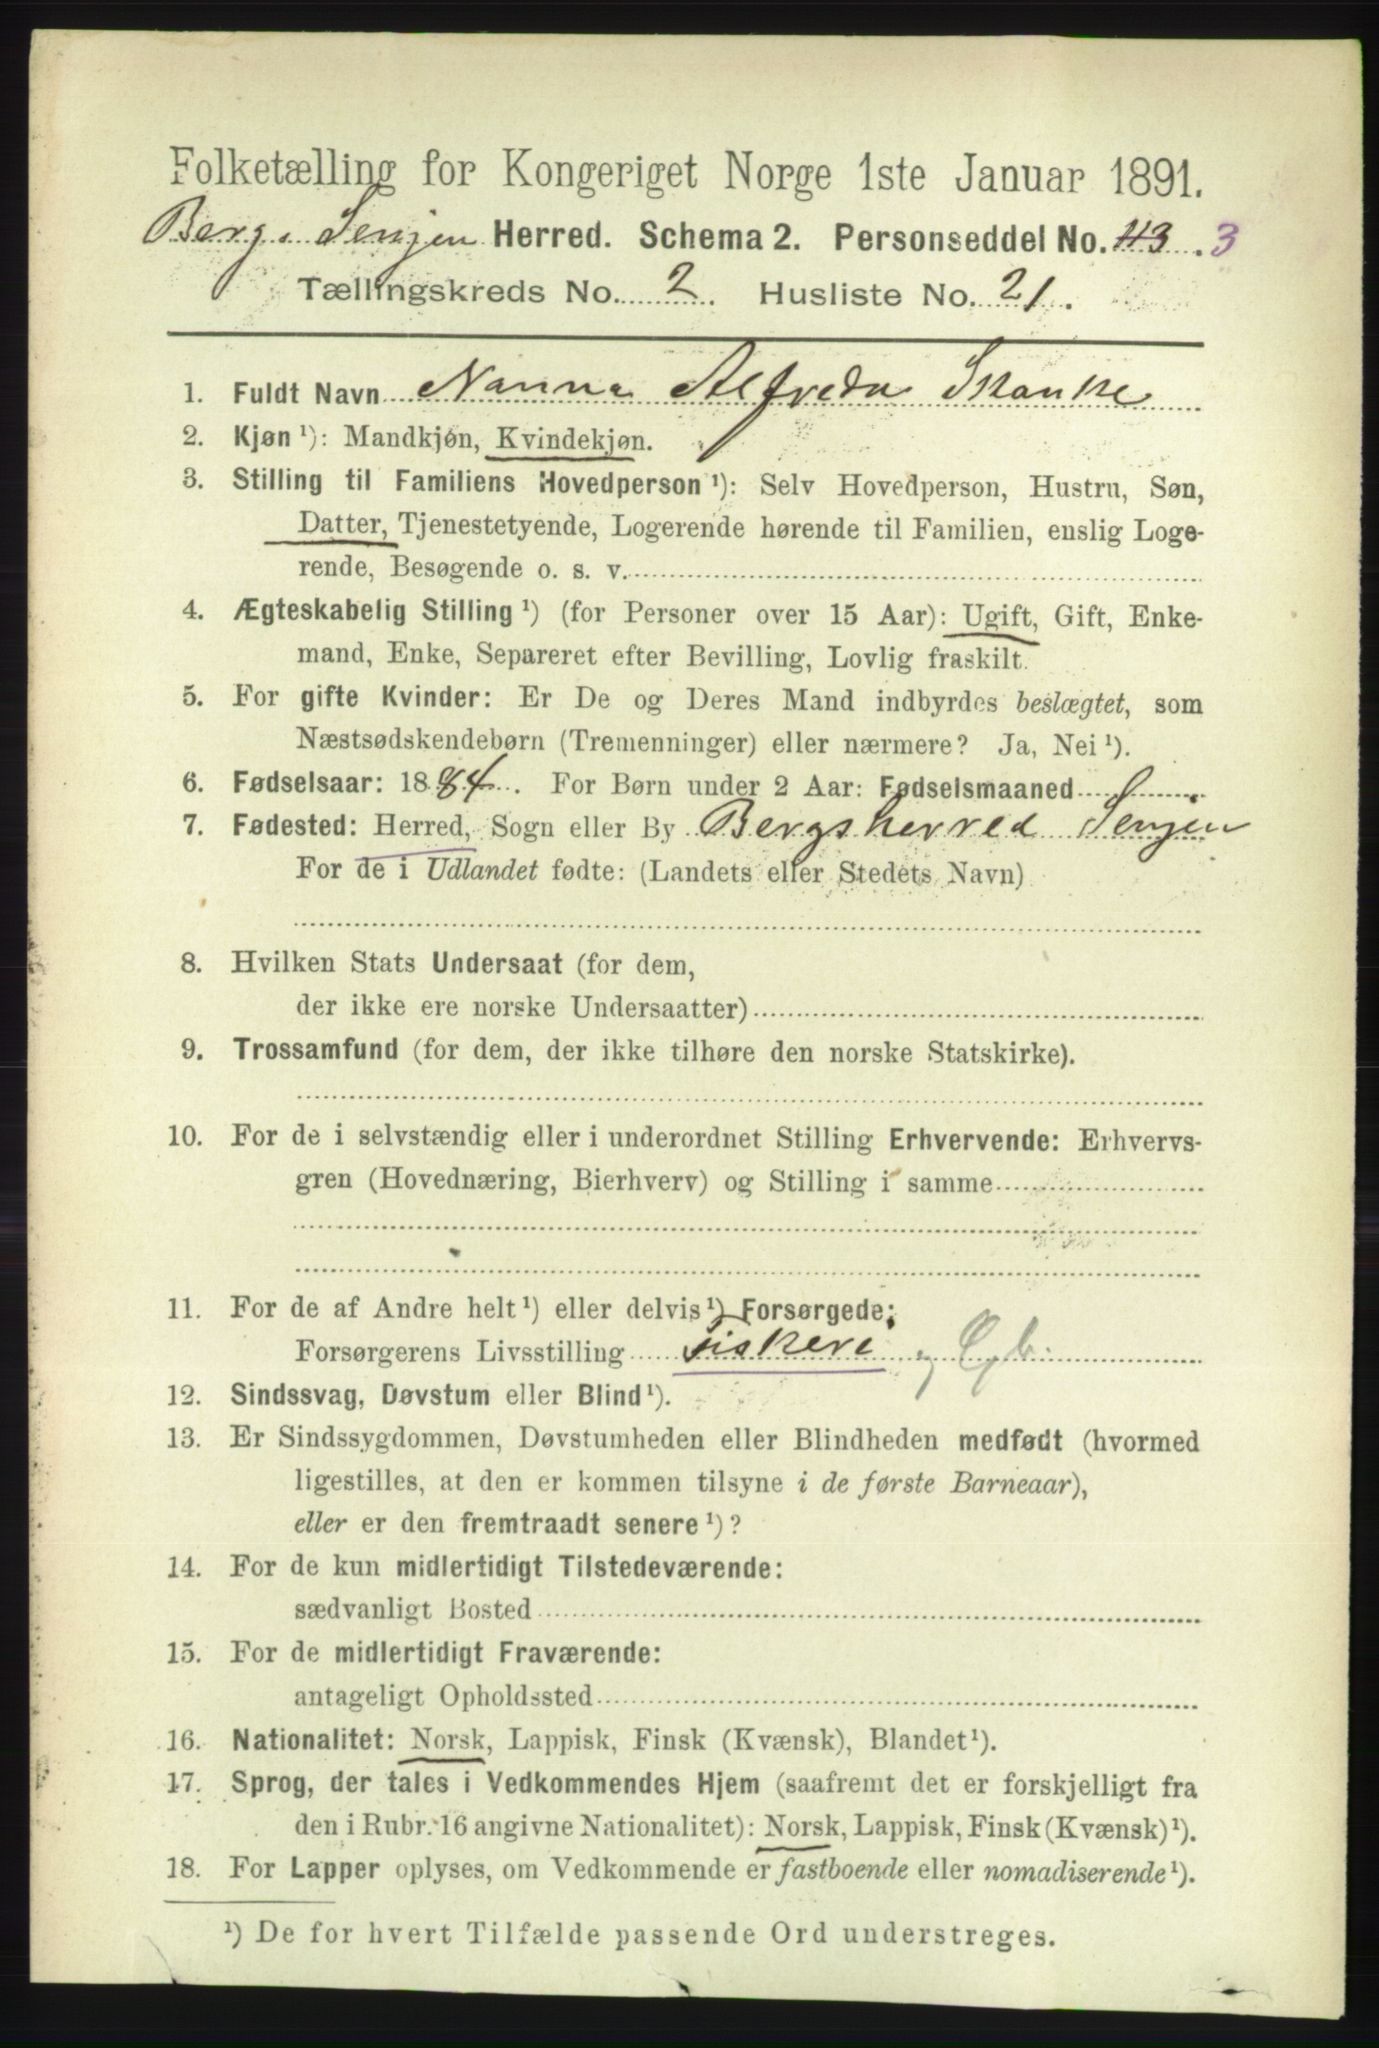 Folketælling for Kongeriget Norge 1ste Januar 1891.
Berg i Senjen Herred. Schema 2. Personseddel No. 113. 3
Tællingskreds No. 2. Husliste No. 21.
1. Fuldt Navn Nanna Alfreda Skanke
2. Kjøn ¹): Mandkjøn, Kvindekjøn.
3. Stilling til Familiens Hovedperson ¹): Selv Hovedperson, Hustru, Søn,
Datter, Tjenestetyende, Logerende hørende til Familien, enslig Loge-
rende, Besøgende o. s. v.
4. Ægteskabelig Stilling ¹) (for Personer over 15 Aar): Ugift, Gift, Enke-
mand, Enke, Separeret efter Bevilling, Lovlig fraskilt.
5. For gifte Kvinder: Er De og Deres Mand indbyrdes beslægtet, som
Næstsødskendebørn (Tremenninger) eller nærmere? Ja, Nei ¹).
6. Fødselsaar: 1884. For Børn under 2 Aar: Fødselsmaaned
7. Fødested: Herred, Sogn eller By Bergsherred Senjen
For de i Udlandet fødte: (Landets eller Stedets Navn)
8. Hvilken Stats Undersaat (for dem,
der ikke ere norske Undersaatter)
9. Trossamfund (for dem, der ikke tilhøre den norske Statskirke).
10. For de i selvstændig eller i underordnet Stilling Erhvervende: Erhvervs-
gren (Hovednæring, Bierhverv) og Stilling i samme
11. For de af Andre helt ¹) eller delvis ¹) Forsørgede:
Forsørgerens Livsstilling fiskere
12. Sindssvag, Døvstum eller Blind ¹).
13. Er Sindssygdommen, Døvstumheden eller Blindheden medfødt (hvormed
ligestilles, at den er kommen tilsyne i de første Barneaar),
eller er den fremtraadt senere ¹)?
14. For de kun midlertidigt Tilstedeværende:
sædvanligt Bosted
15. For de midlertidigt Fraværende:
antageligt Opholdssted
16. Nationalitet: Norsk, Lappisk, Finsk (Kvænsk), Blandet ¹).
17. Sprog, der tales i Vedkommendes Hjem (saafremt det er forskjelligt fra
den i Rubr. 16 angivne Nationalitet): Norsk, Lappisk, Finsk (Kvænsk) ¹).
18. For Lapper oplyses, om Vedkommende er fastboende eller nomadiserende ¹).
¹) De for hvert Tilfælde passende Ord understreges.